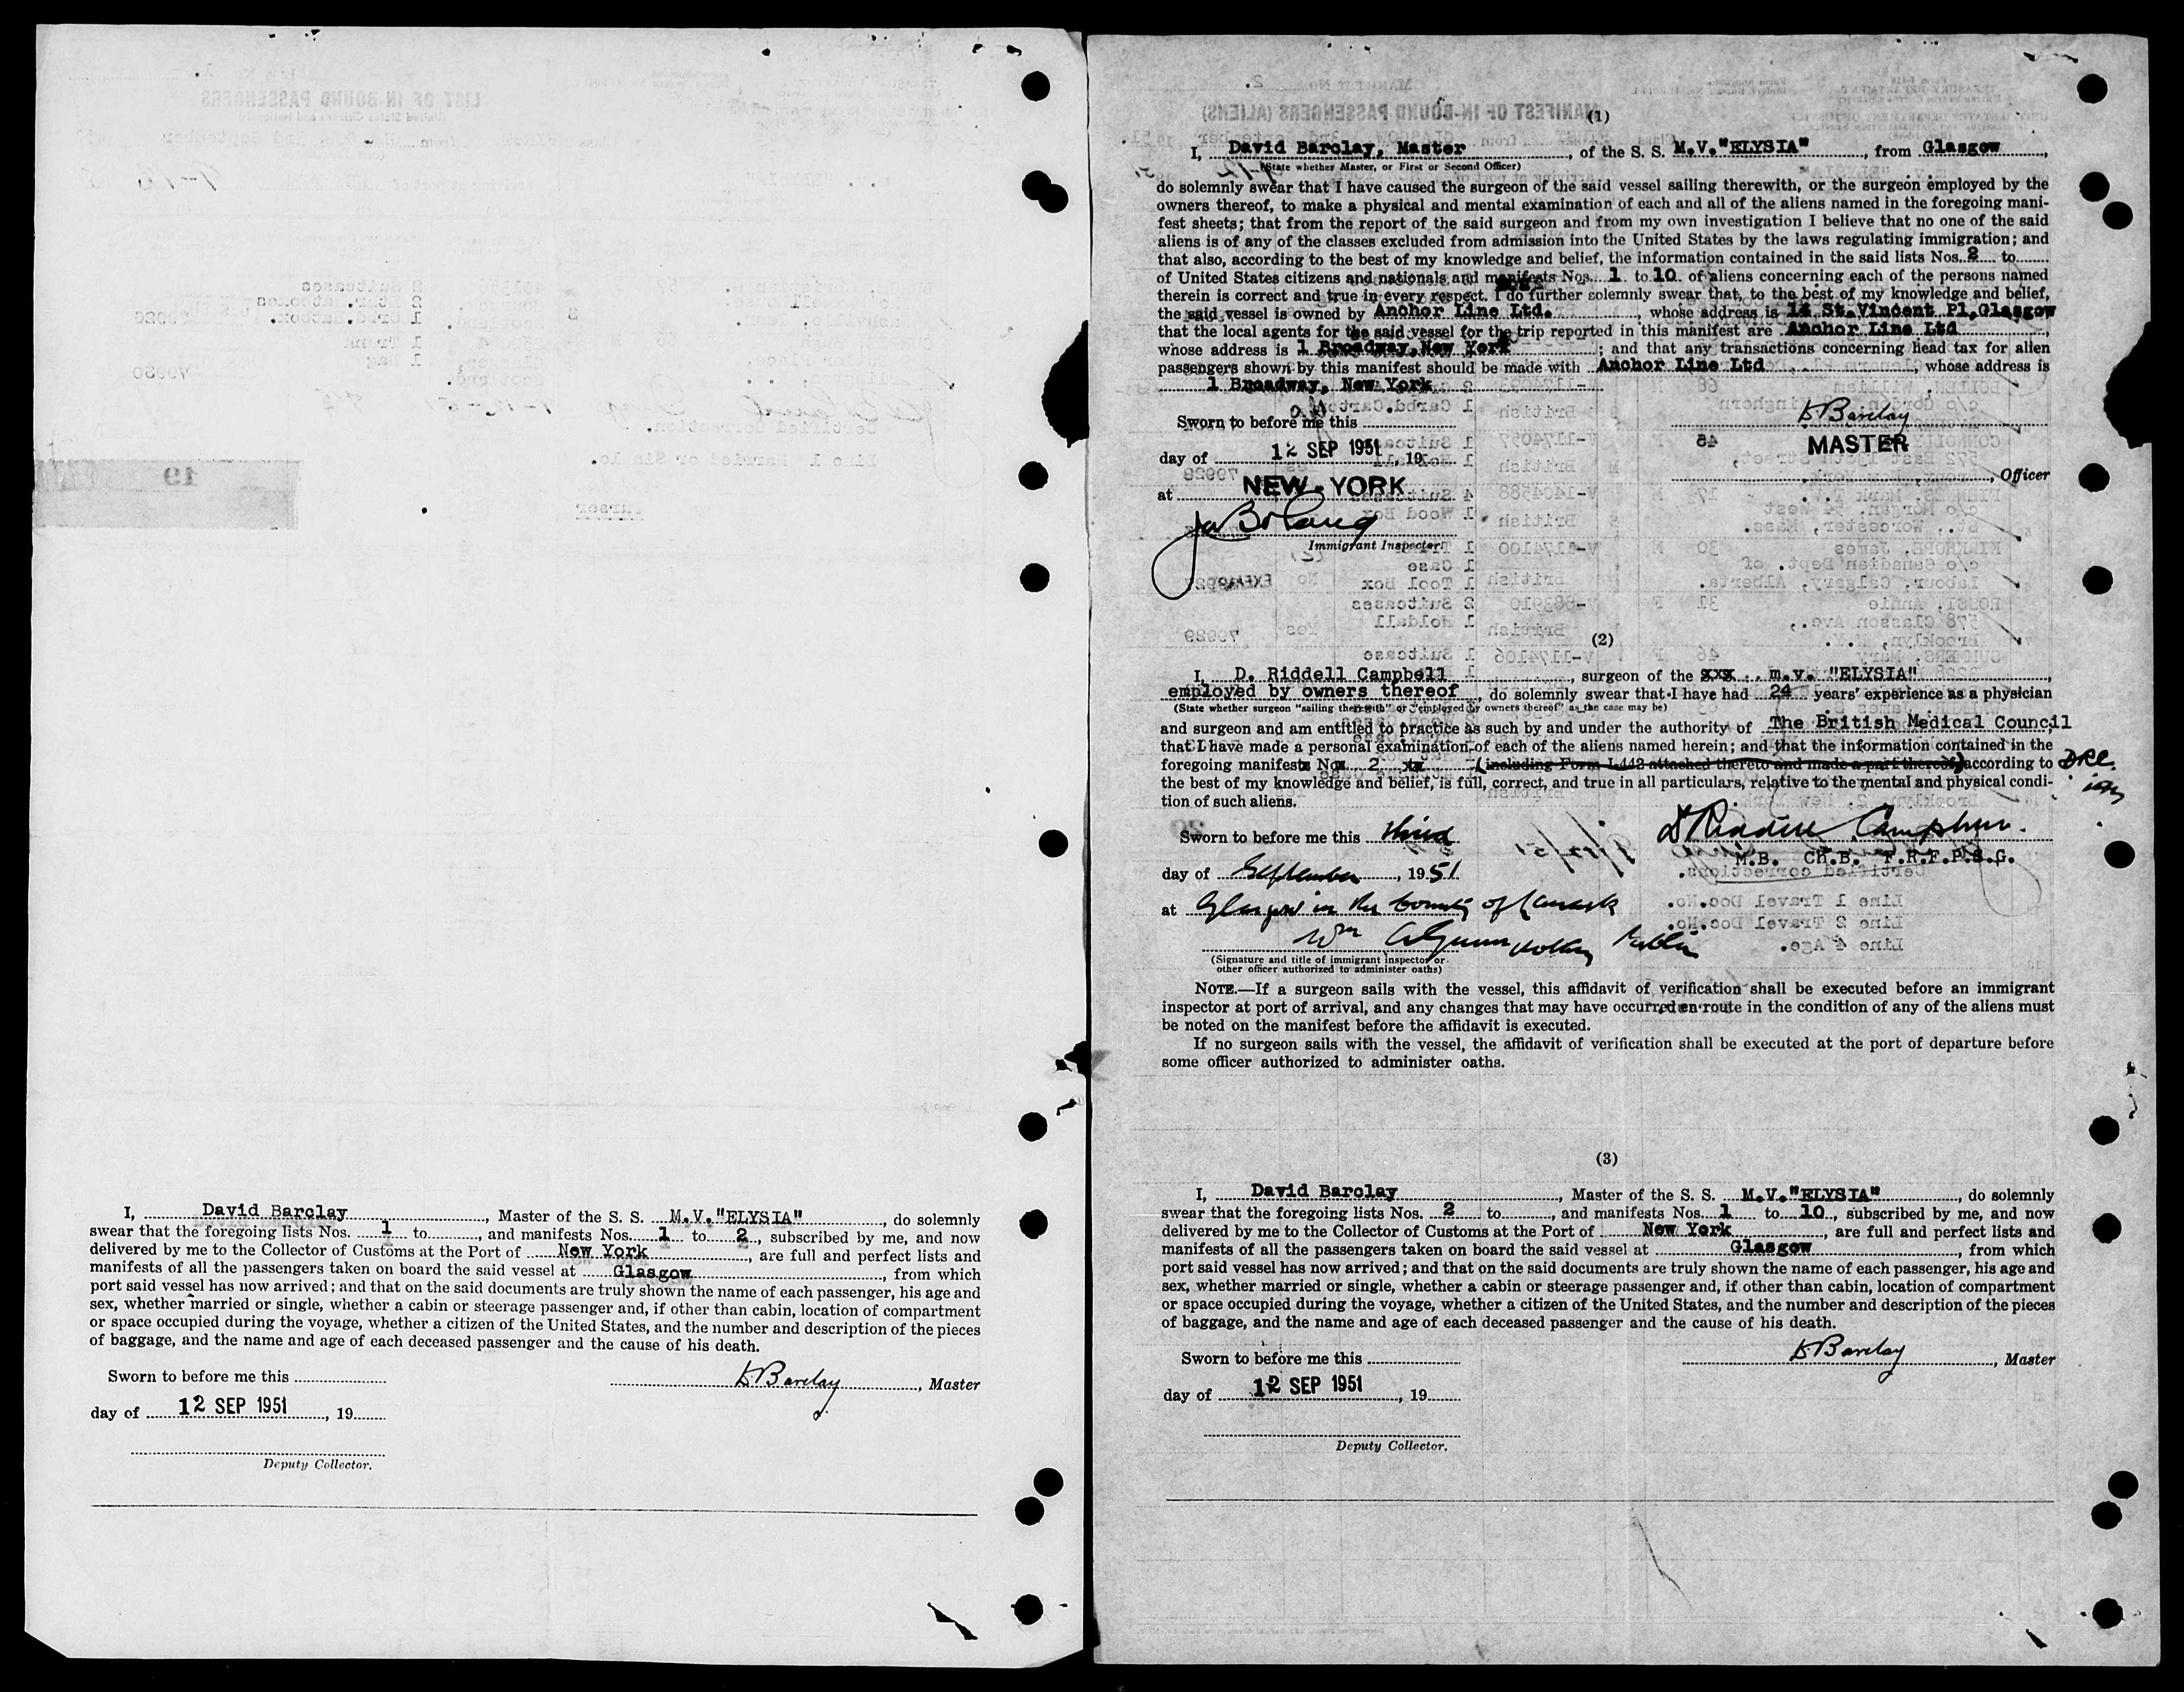 I, David Barclay, Master of the S. S. M.V."ELYSIA", do solemnly
swear that the foregoing lists Nos. 1 to, and manifests Nos. 1 to 2, subscribed by me, and now
delivered by me to the Collector of Customs at the Port of New York, are full and perfect lists and
manifests of all the passengers taken on board the said vessel at Glasgow, from which
port said vessel has now arrived; and that on the said documents are truly shown the name of each passenger, his age and
sex, whether married or single, whether a cabin or steerage passenger and, if other than cabin, location of compartment
or space occupied during the voyage, whether a citizen of the United States, and the number and description of the pieces
of baggage, and the name and age of each deceased passenger and the cause of his death.
Sworn to before me this
D Barclay, Master
day of 12 SEP 1951, 19
Deputy Collector.
(1)
I, David Barclay, Master, of the S. S. M.V."ELYSIA", from Glasgow,
(State whether Master, or First or Second Officer)
do solemnly swear that I have caused the surgeon of the said vessel sailing therewith, or the surgeon employed by the
owners thereof, to make a physical and mental examination of each and all of the aliens named in the foregoing mani-
fest sheets; that from the report of the said surgeon and from my own investigation I believe that no one of the said
aliens is of any of the classes excluded from admission into the United States by the laws regulating immigration; and
that also, according to the best of my knowledge and belief, the information contained in the said lists Nos. 2 to
of United States citizens and nationals and manifests Nos. 1 to 10 of aliens concerning each of the persons named
therein is correct and true in every respect. I do further solemnly swear that, to the best of my knowledge and belief,
the said vessel is owned by Anchor Line Ltd., whose address is 14 St.Vincent Pl,Glasgow
that the local agents for the said vessel for the trip reported in this manifest are Anchor Line Ltd,
whose address is 1 Broadway, New York; and that any transactions concerning head tax for alien
passengers shown by this manifest should be made with Anchor Line Ltd, whose address is
1 Broadway, New York
Sworn to before me this
D Barclay
MASTER
day of 12 SEP 1951, 19
, Officer
at NEW YORK
Immigrant Inspector.
(2)
I, D. Riddell Campbell, surgeon of the xxx m.v. "ELYSIA",
employed by owners thereof, do solemnly swear that I have had 24 years' experience as a physician
(State whether surgeon "sailing therewith" or "employed by owners thereof" as the case may be)
and surgeon and am entitled to practice as such by and under the authority of The British Medical Council;
that I have made a personal examination of each of the aliens named herein; and that the information contained in the
foregoing manifests Nos. 2 to (including Form I-442 attached thereto and made a part thereof) according to DRC.
the best of my knowledge and belief, is full, correct, and true in all particulars, relative to the mental and physical condi-
tion of such aliens.
Sworn to before me this third
D Riddell Campbell.
M.B. Ch.B. F.R.F.P.S.G.
day of September, 1951
at Glasgow in the County of Lanark
Wm Notary Public
(Signature and title of immigrant inspector or
other officer authorized to administer oaths)
NOTE.—If a surgeon sails with the vessel, this affidavit of verification shall be executed before an immigrant
inspector at port of arrival, and any changes that may have occurred en route in the condition of any of the aliens must
be noted on the manifest before the affidavit is executed.
If no surgeon sails with the vessel, the affidavit of verification shall be executed at the port of departure before
some officer authorized to administer oaths.
(3)
I, David Barclay, Master of the S. S. M.V."ELYSIA", do solemnly
swear that the foregoing lists Nos. 2 to, and manifests Nos. 1 to 10, subscribed by me, and now
delivered by me to the Collector of Customs at the Port of New York, are full and perfect lists and
manifests of all the passengers taken on board the said vessel at Glasgow, from which
port said vessel has now arrived; and that on the said documents are truly shown the name of each passenger, his age and
sex, whether married or single, whether a cabin or steerage passenger and, if other than cabin, location of compartment
or space occupied during the voyage, whether a citizen of the United States, and the number and description of the pieces
of baggage, and the name and age of each deceased passenger and the cause of his death.
Sworn to before me this
D Barclay, Master
day of 12 SEP 1951, 19
Deputy Collector.